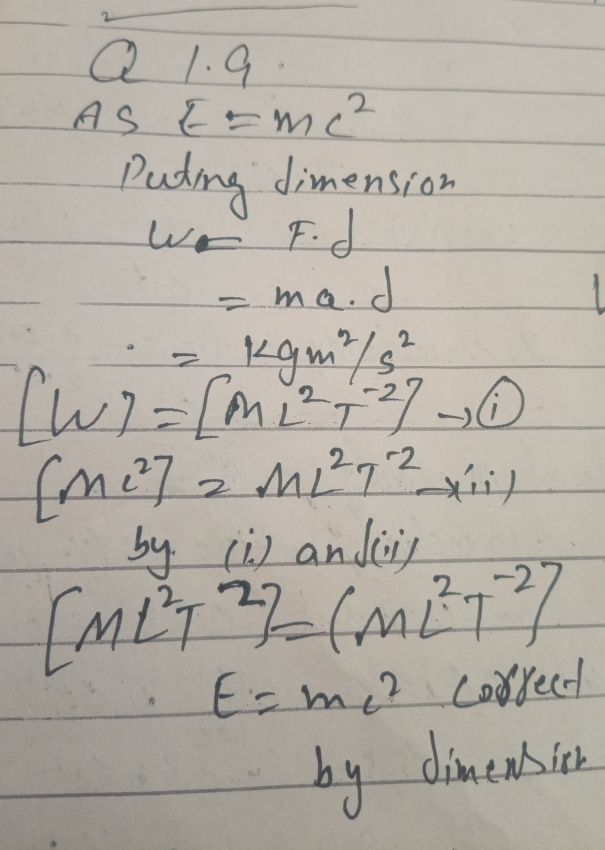 2
Q 1.9.
AS E = mc²
Puting dimension
W = F.d
= ma.d
= kgm²/s²
[W] = [ML²T⁻²] → (i)
[mc²] = ML²T⁻² → (ii)
by (i) and (ii)
[ML²T⁻²] = [ML²T⁻²]
E = mc² correct
by dimension